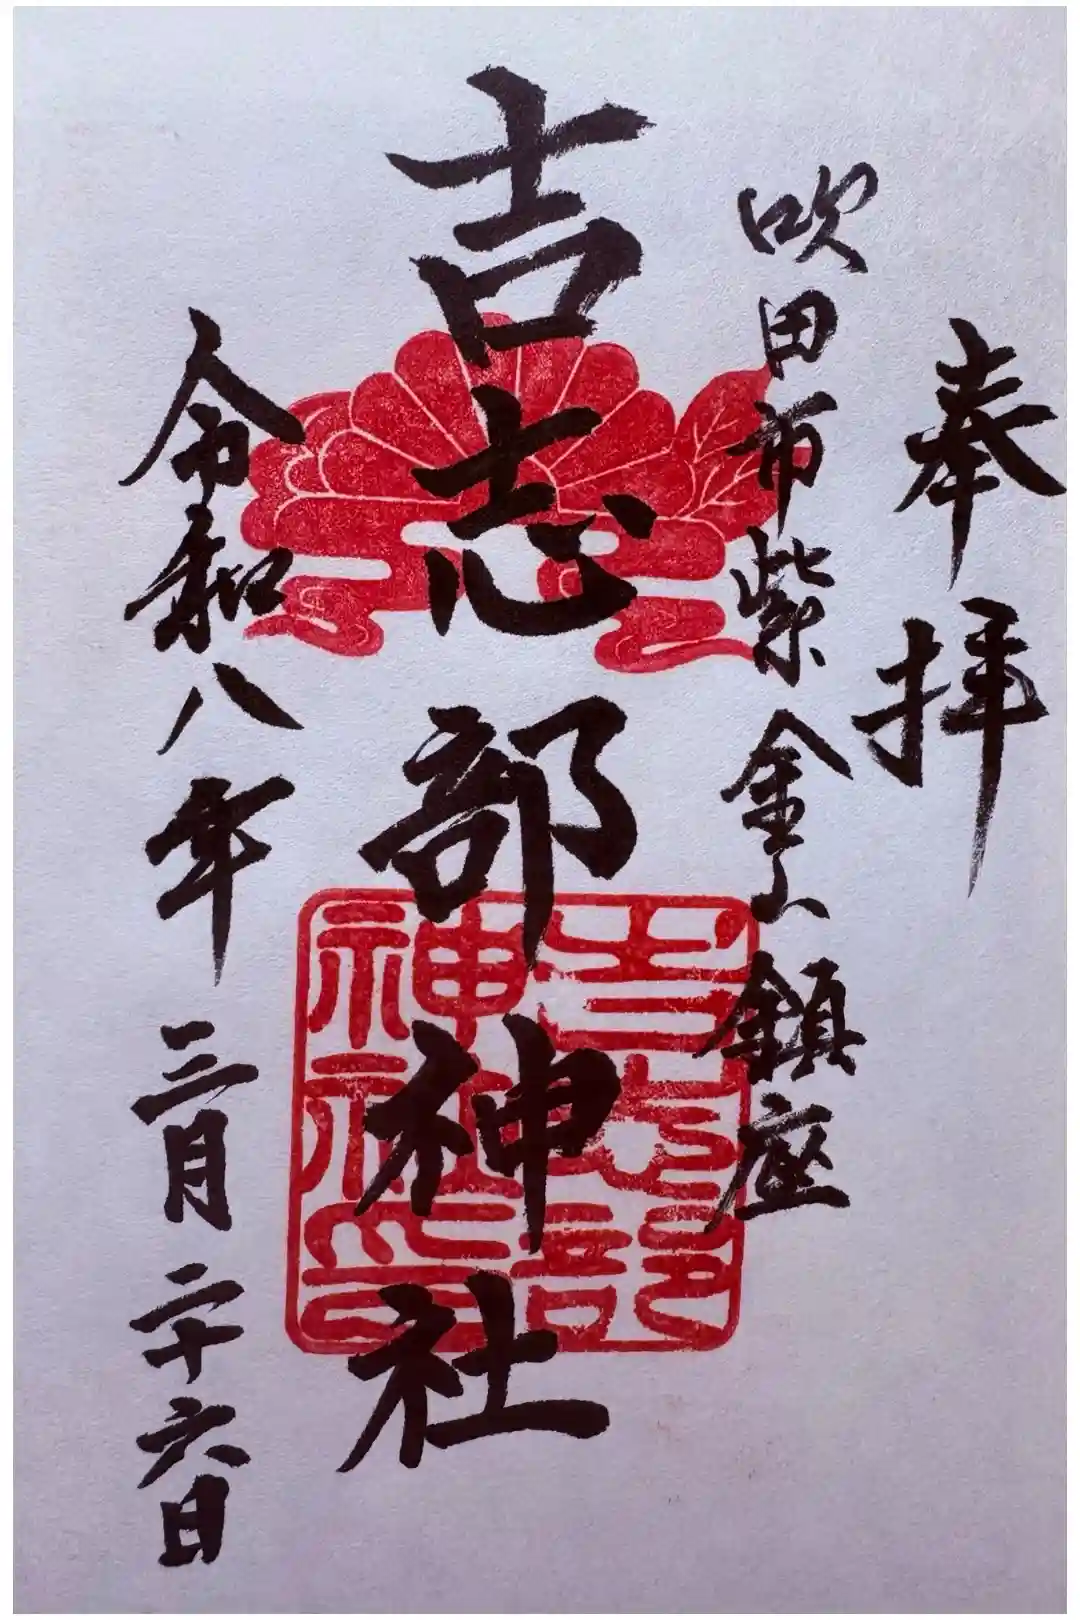 奉拝
吹田市紫金山鎮座
吉志部神社
令和八年三月二十六日
吉志部
神社印